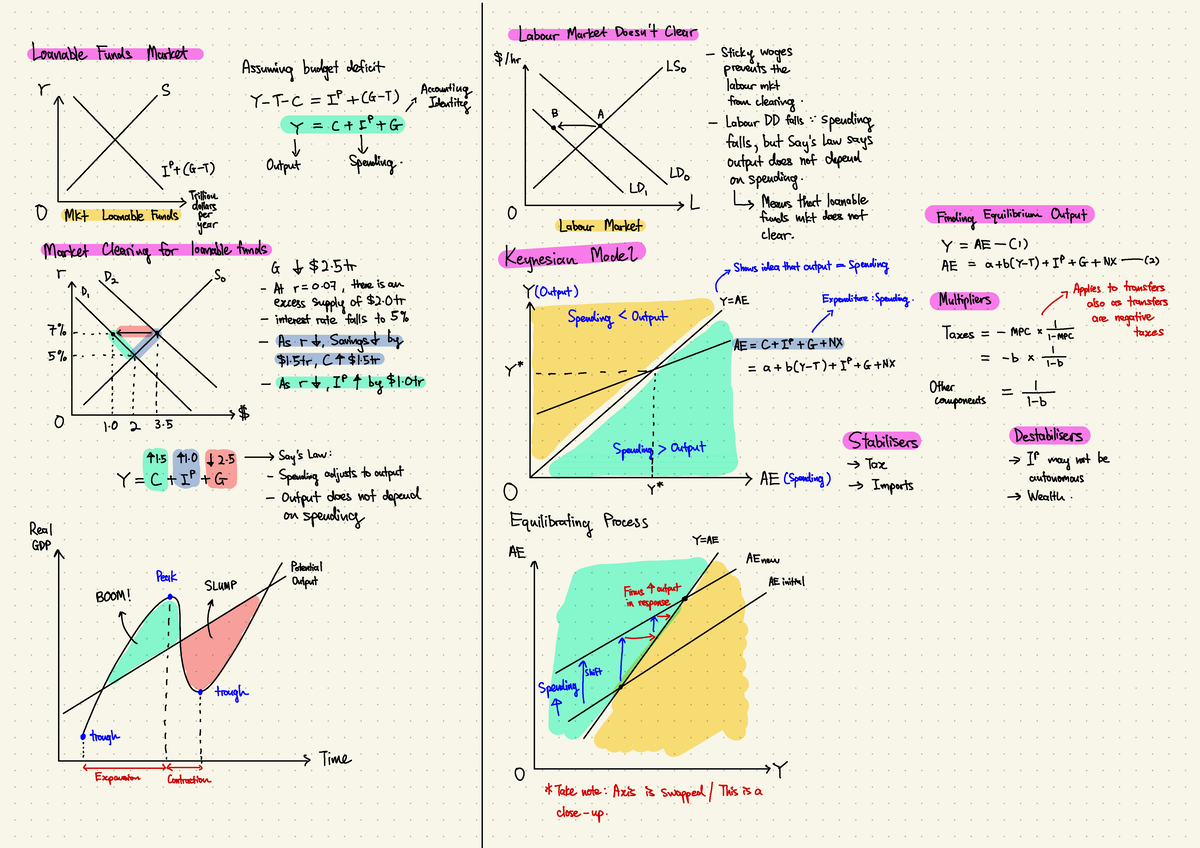 Loanable Funds Market
r
S
I^P+(G-T)
Trillion
dollars
per
year
0
Mkt Loanable Funds
Assuming budget deficit
Y-T-C = I^P+(G-T)
Accounting
Identity
Y = C+I^P+G
Output
Spending.
Market Clearing for loanable funds
r
D1
D2
S0
7%
5%
0
1.0 2 3.5
$
G ↓ $2.5tr
- At r=0.07, there is an
excess supply of $2.0tr
- interest rate falls to 5%
- As r↓, Savings↓ by
$1.5tr, C↑$1.5tr
- As r↓, I^P ↑ by $1.0tr
↑1.5 ↑1.0 ↓2.5
Y = C + I^P + G
→ Say's Law:
- Spending adjusts to output
- Output does not depend
on spending
Real
GDP
BOOM!
Peak
SLUMP
Potential
Output
trough
trough
Time
Expansion
Contraction
Labour Market Doesn't Clear
$/hr
LS0
B
A
LD1
LD0
0
L
Labour Market
- Sticky wages
prevents the
labour mkt
from clearing.
- Labour DD falls ∵ spending
falls, but Say's Law says
output does not depend
on spending.
↳ Means that loanable
funds mkt does not
clear.
Keynesian Model
Y(Output)
Shows idea that output = Spending
Y=AE
Spending < Output
Expenditure: Spending.
AE = C+I^P+G+NX
= a+b(Y-T)+I^P+G+NX
Y*
Spending > Output
0
Y*
AE (Spending)
Finding Equilibrium Output
Y = AE —(1)
AE = a+b(Y-T)+I^P+G+NX —(2)
Multipliers
Applies to transfers
also as transfers
are negative
taxes
Taxes = - MPC × 1/1-MPC
= -b × 1/1-b
Other
components = 1/1-b
Stabilisers
→ Tax
→ Imports
Destabilisers
→ I^P may not be
autonomous
→ Wealth.
Equilibrating Process
AE
Y=AE
AE new
AE initial
Firms ↑ output
in response
Shift
Spending
↑
0
Y
*Take note: Axis is swapped / This is a
close-up.